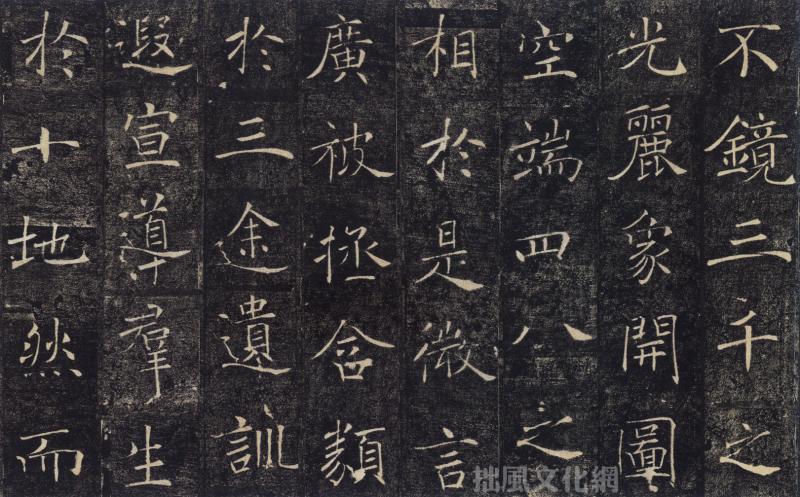 不鏡三千之
光麗象開圖
空端四八之
相於是微言
廣被拯含類
於三途遺訓
遐宣導群生
於十地然而
拙風文化網